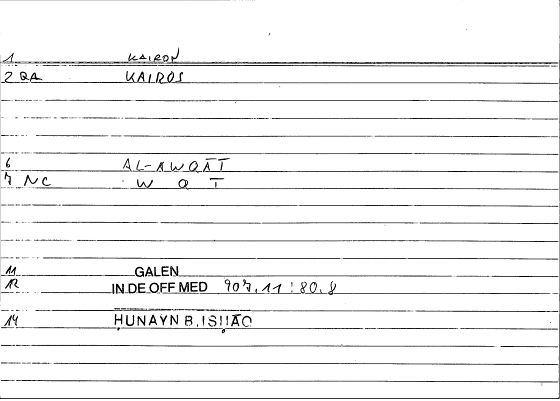 1 KAIRON
2 QA KAIROS
6 AL-AWQĀT
7 NC W Q T
11 GALEN
12 IN DE OFF MED 907,11 : 80,8
14 ḤUNAYN B. ISḤĀQ